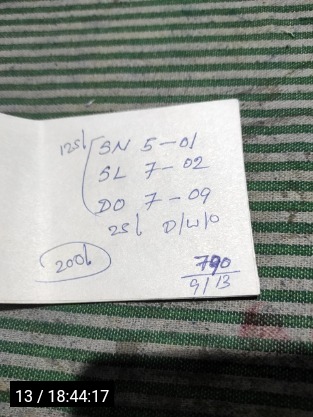 125/ SN 5-01
SL 7-02
DO 7-09
25/ D/W/O
200/
790
9/13
13 / 18:44:17